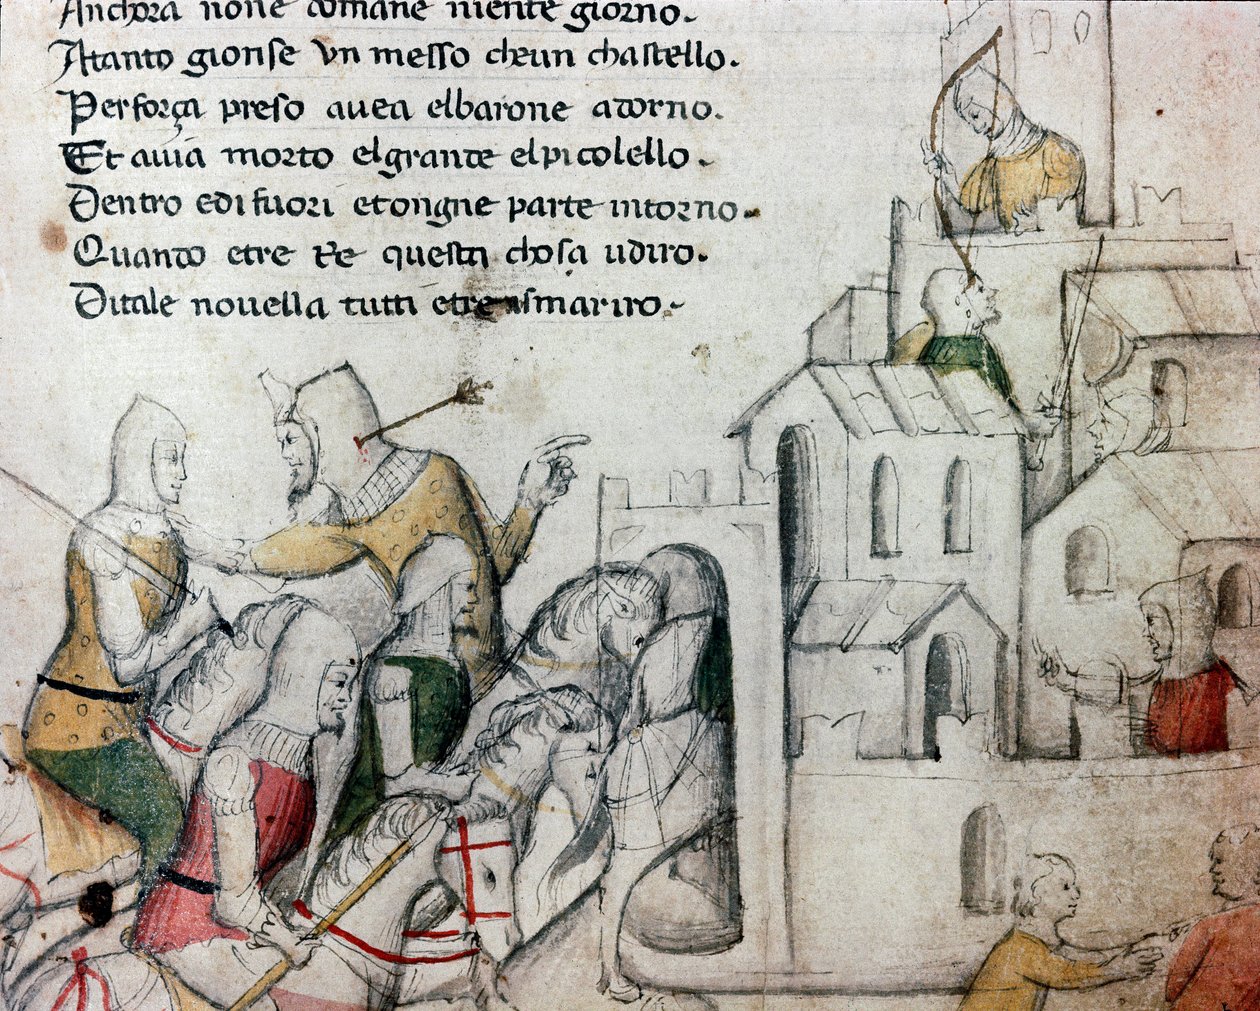 Anchora none domane niente giorno.
Atanto gionse vn messo cheun chastello.
Per força preso auea elbarone atorno.
Et auia morto elgrante elpicolello.
Dentro edi fuori etongne parte intorno.
Quanto etre Re questa chosa udiro.
Ditale nouella tutti etre asmariro.